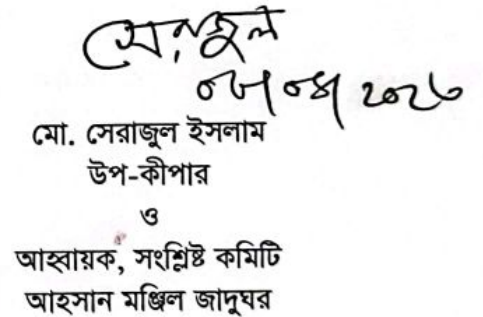 সেরাজুল
মো. সেরাজুল ইসলাম
উপ-কীপার
ও
আহ্বায়ক, সংশ্লিষ্ট কমিটি
আহসান মঞ্জিল জাদুঘর